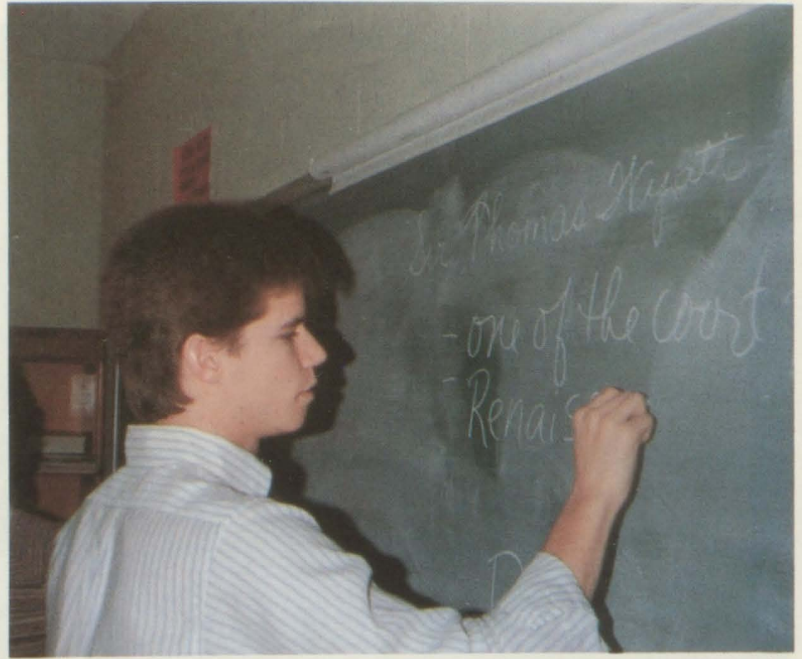 Sir Thomas Wyatt
- one of the court
- Renais
D